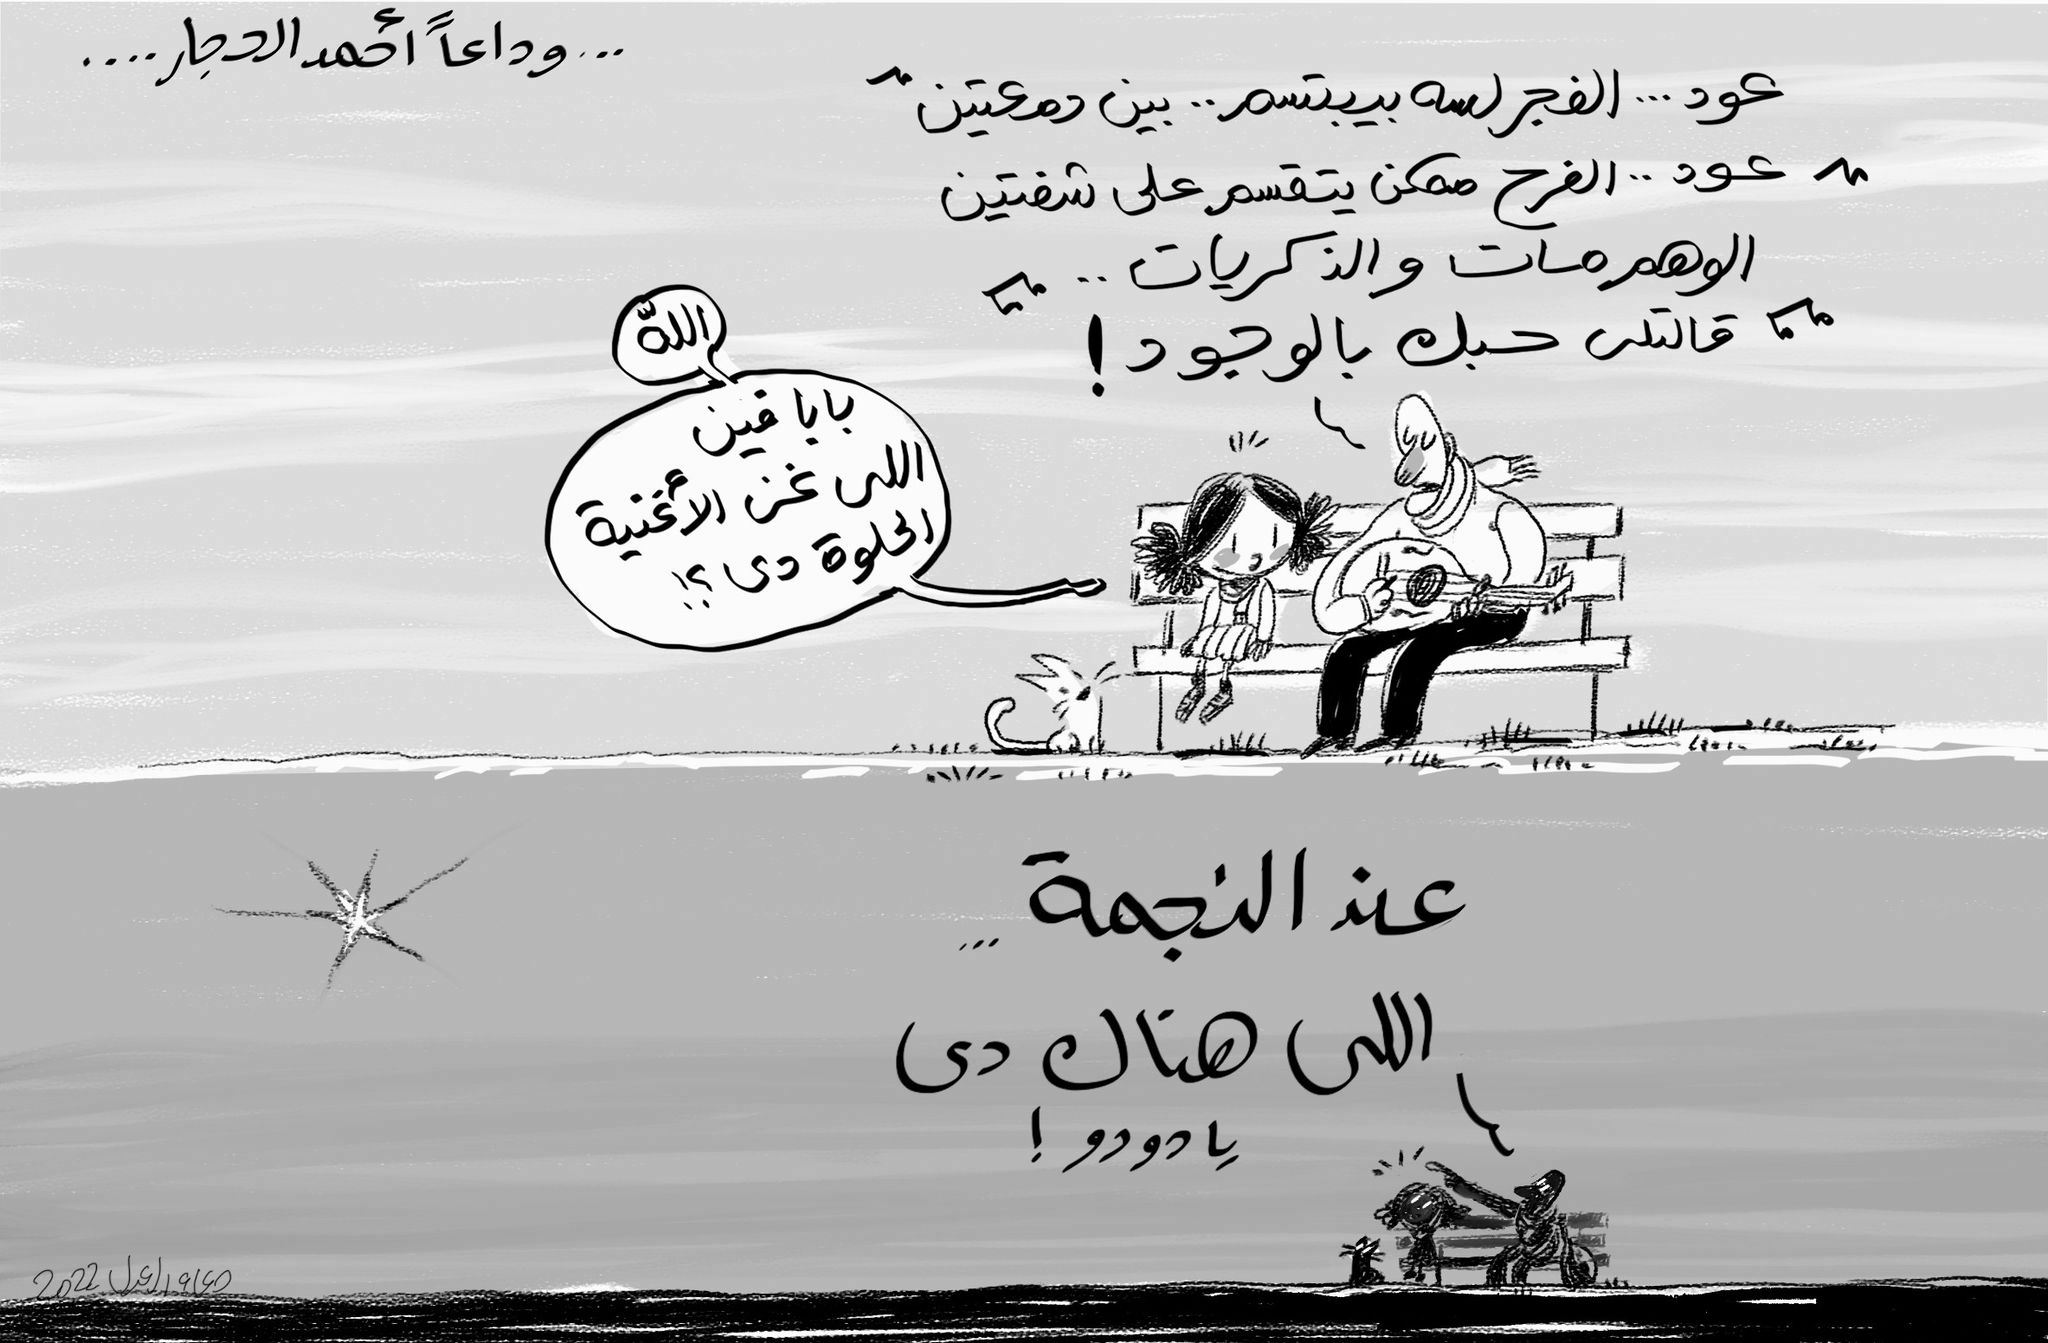 ...وداعاً أحمد الحجار....
عود... الفجر لسه بيبتسم.. بين دمعتين
عود.. الفرح ممكن يتقسم على شفتين
الوهم مات والذكريات..
قالتلى حبك بالوجود!
الله
بابا فين
اللى غنى الأغنية
الحلوة دى؟!
عند النجمة...
اللى هناك دى
يا دودو!
2022